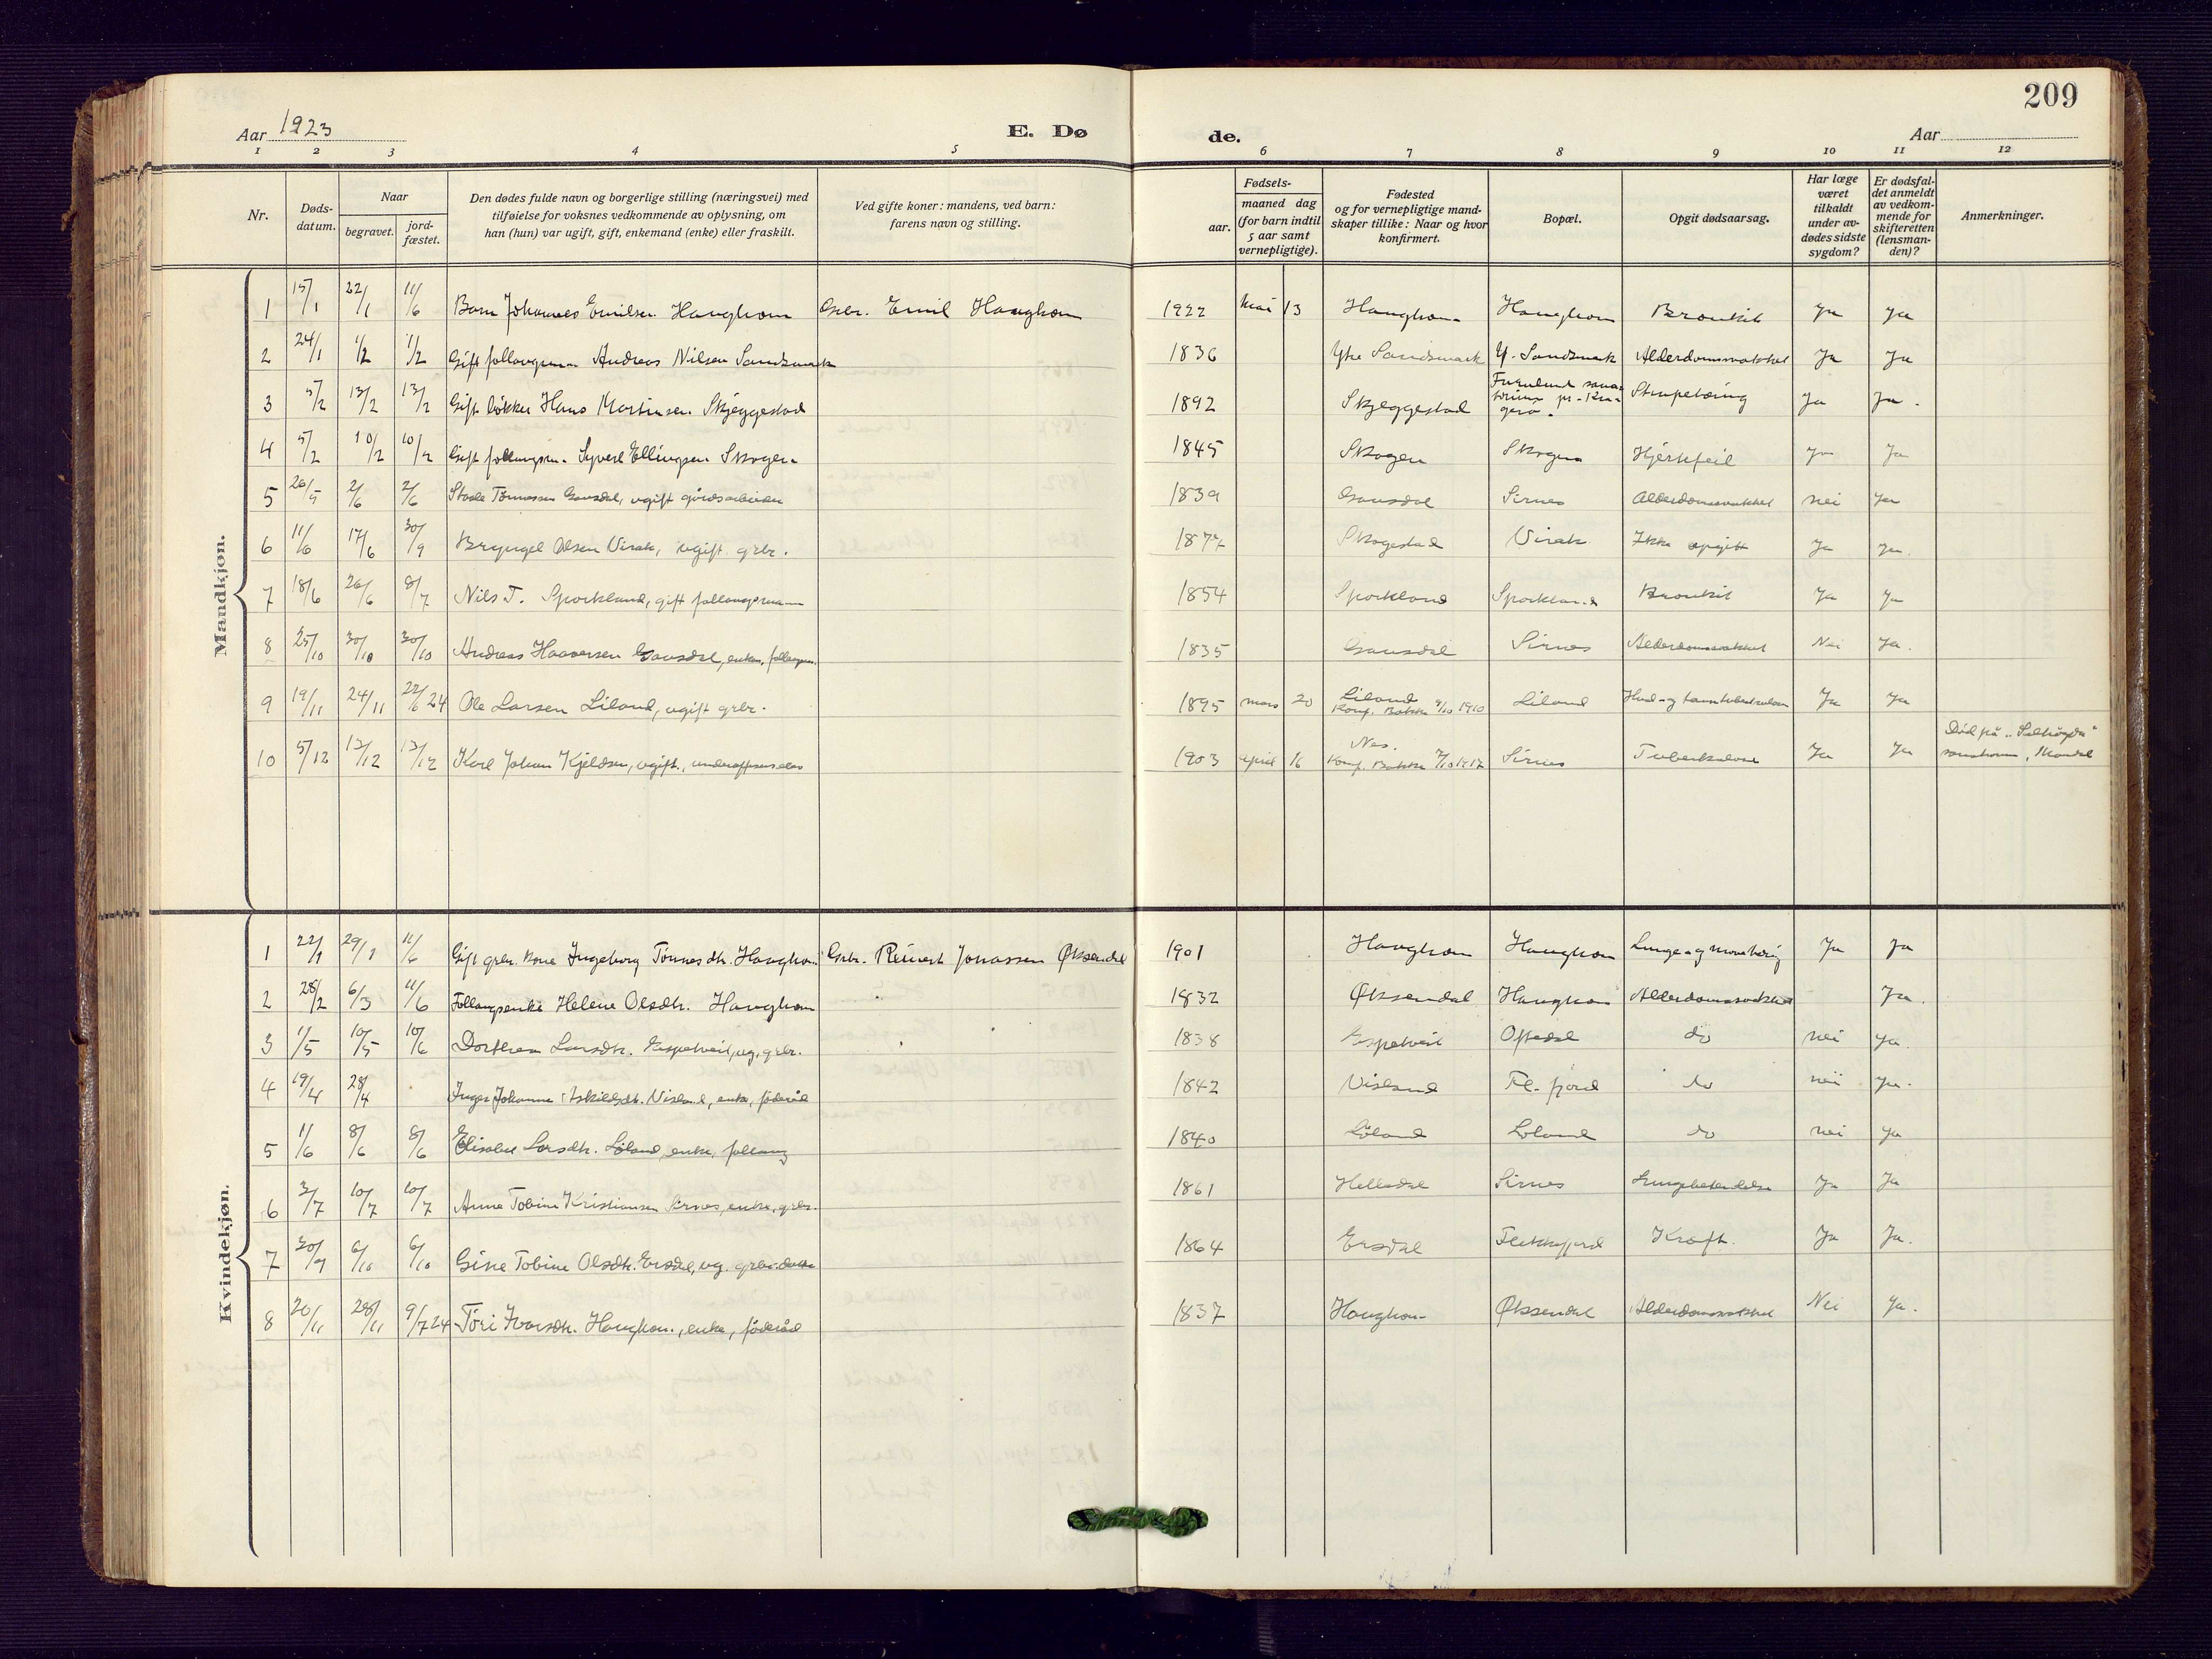 209
Aar 1923
E. Dø
de.
Aar
1 2 3 4 5 6 7 8 9 10 11 12
Nr.
Døds-
datum.
Naar
begravet.
jord-
fæstet.
Den dødes fulde navn og borgerlige stilling (næringsvei) med
tilføielse for voksnes vedkommende av oplysning, om
han (hun) var ugift, gift, enkemand (enke) eller fraskilt.
Ved gifte koner: mandens, ved barn:
farens navn og stilling.
Fødsels-
aar.
maaned dag
(for barn indtil
5 aar samt
vernepligtige).
Fødested
og for vernepligtige mand-
skaper tillike: Naar og hvor
konfirmert.
Bopæl.
Opgit dødsaarsag.
Har læge
været
tilkaldt
under av-
dødes sidste
sygdom?
Er dødsfal-
det anmeldt
av vedkom-
mende for
skifteretten
(lensman-
den)?
Anmerkninger.
Mandkjøn.
1 15/1 22/1 11/6 Barn Johannes Emilsen Haughom Gbr. Emil Haughom 1922 mai 13 Haughom Haughom Bronkit Ja Ja
2 24/1 1/2 1/2 Gift follaugsm. Andreas Nilsen Sandsmark 1836 Ytre Sandsmark Y. Sandsmark Alderdomssvakhet Ja Ja
3 5/2 13/2 13/2 Gift Hans Martinsen Skjeggestad 1892 Skjeggestad Furulund sana-
torium pr. Kra-
gerø. Strupetæring Ja Ja.
4 5/2 10/2 10/2 Gift follaugsm. Syvert Ellingsen Skogen 1845 Skogen Skogen Hjertefeil Ja Ja
5 26/5 2/6 2/6 Tønnessen Gausdal, ugift gårdsarbeider 1839 Gausdal Sirnes Alderdomssvakhet nei Ja
6 11/6 17/6 30/9 Bryngel Olsen Virak, ugift gbr. 1877 Skogestad Virak Ikke opgitt Ja Ja
7 18/6 26/6 8/7 Nils T. Sporkland, gift follaugsmann 1854 Sporkland Sporkland Bronkit Ja Ja
8 25/10 30/10 30/10 Andreas Haaversen Gausdal, enkem., follaugsm. 1835 Gausdal Sirnes Alderdomssvakhet Nei Ja.
9 19/11 24/11 22/6 24 Ole Larsen Liland, ugift gbr. 1895 mars 20 Liland
Konf. Bakke 9/10 1910 Liland Ja Ja
10 5/12 13/12 13/12 Karl Johan Kjeldsen, ugift, underoffiserselev 1903 april 16 Nes.
Konf. Bakke 7/10 1917 Sirnes Tuberkulose Ja Ja Død på "Solhøgda"
, Mandal
Kvindekjøn.
1 22/1 29/1 11/6 Gift gbr. kone Ingeborg Tønnesdtr. Haughom Gbr. Reinert Jonassen Øksendal 1901 Haughom Haughom Lunge- og Ja Ja
2 28/2 6/3 11/6 Follaugsenke Helene Olsdtr. Haughom 1832 Øksendal Haughom Alderdomssvakhet Ja.
3 1/5 10/5 10/6 Dorthea Larsdtr. Espetveit, ug. gbr. 1838 Espetveit Oftedal do nei Ja.
4 19/4 28/4 Inger Johanne Askildsdtr. Visland, enke, føderåd 1842 Visland Fl. fjord do nei Ja.
5 1/6 8/6 8/6 Elisabet Larsdtr. Løland, enke, follaug 1840 Løland Løland do nei Ja
6 3/7 10/7 10/7 Anne Tobine Kristiansen Sirnes, enke, gbr. 1861 Helledal Sirnes Lungebetendelse Ja Ja
7 30/9 6/10 6/10 Gine Tobine Olsdtr. Ersdal, ug. gbr. datter 1864 Ersdal Flekkefjord Kræft. Ja Ja.
8 20/11 28/11 9/7 24 Tori Ivarsdtr. Haughom, enke, føderåd 1837 Haughom Øksendal Alderdomssvakhet Nei Ja.